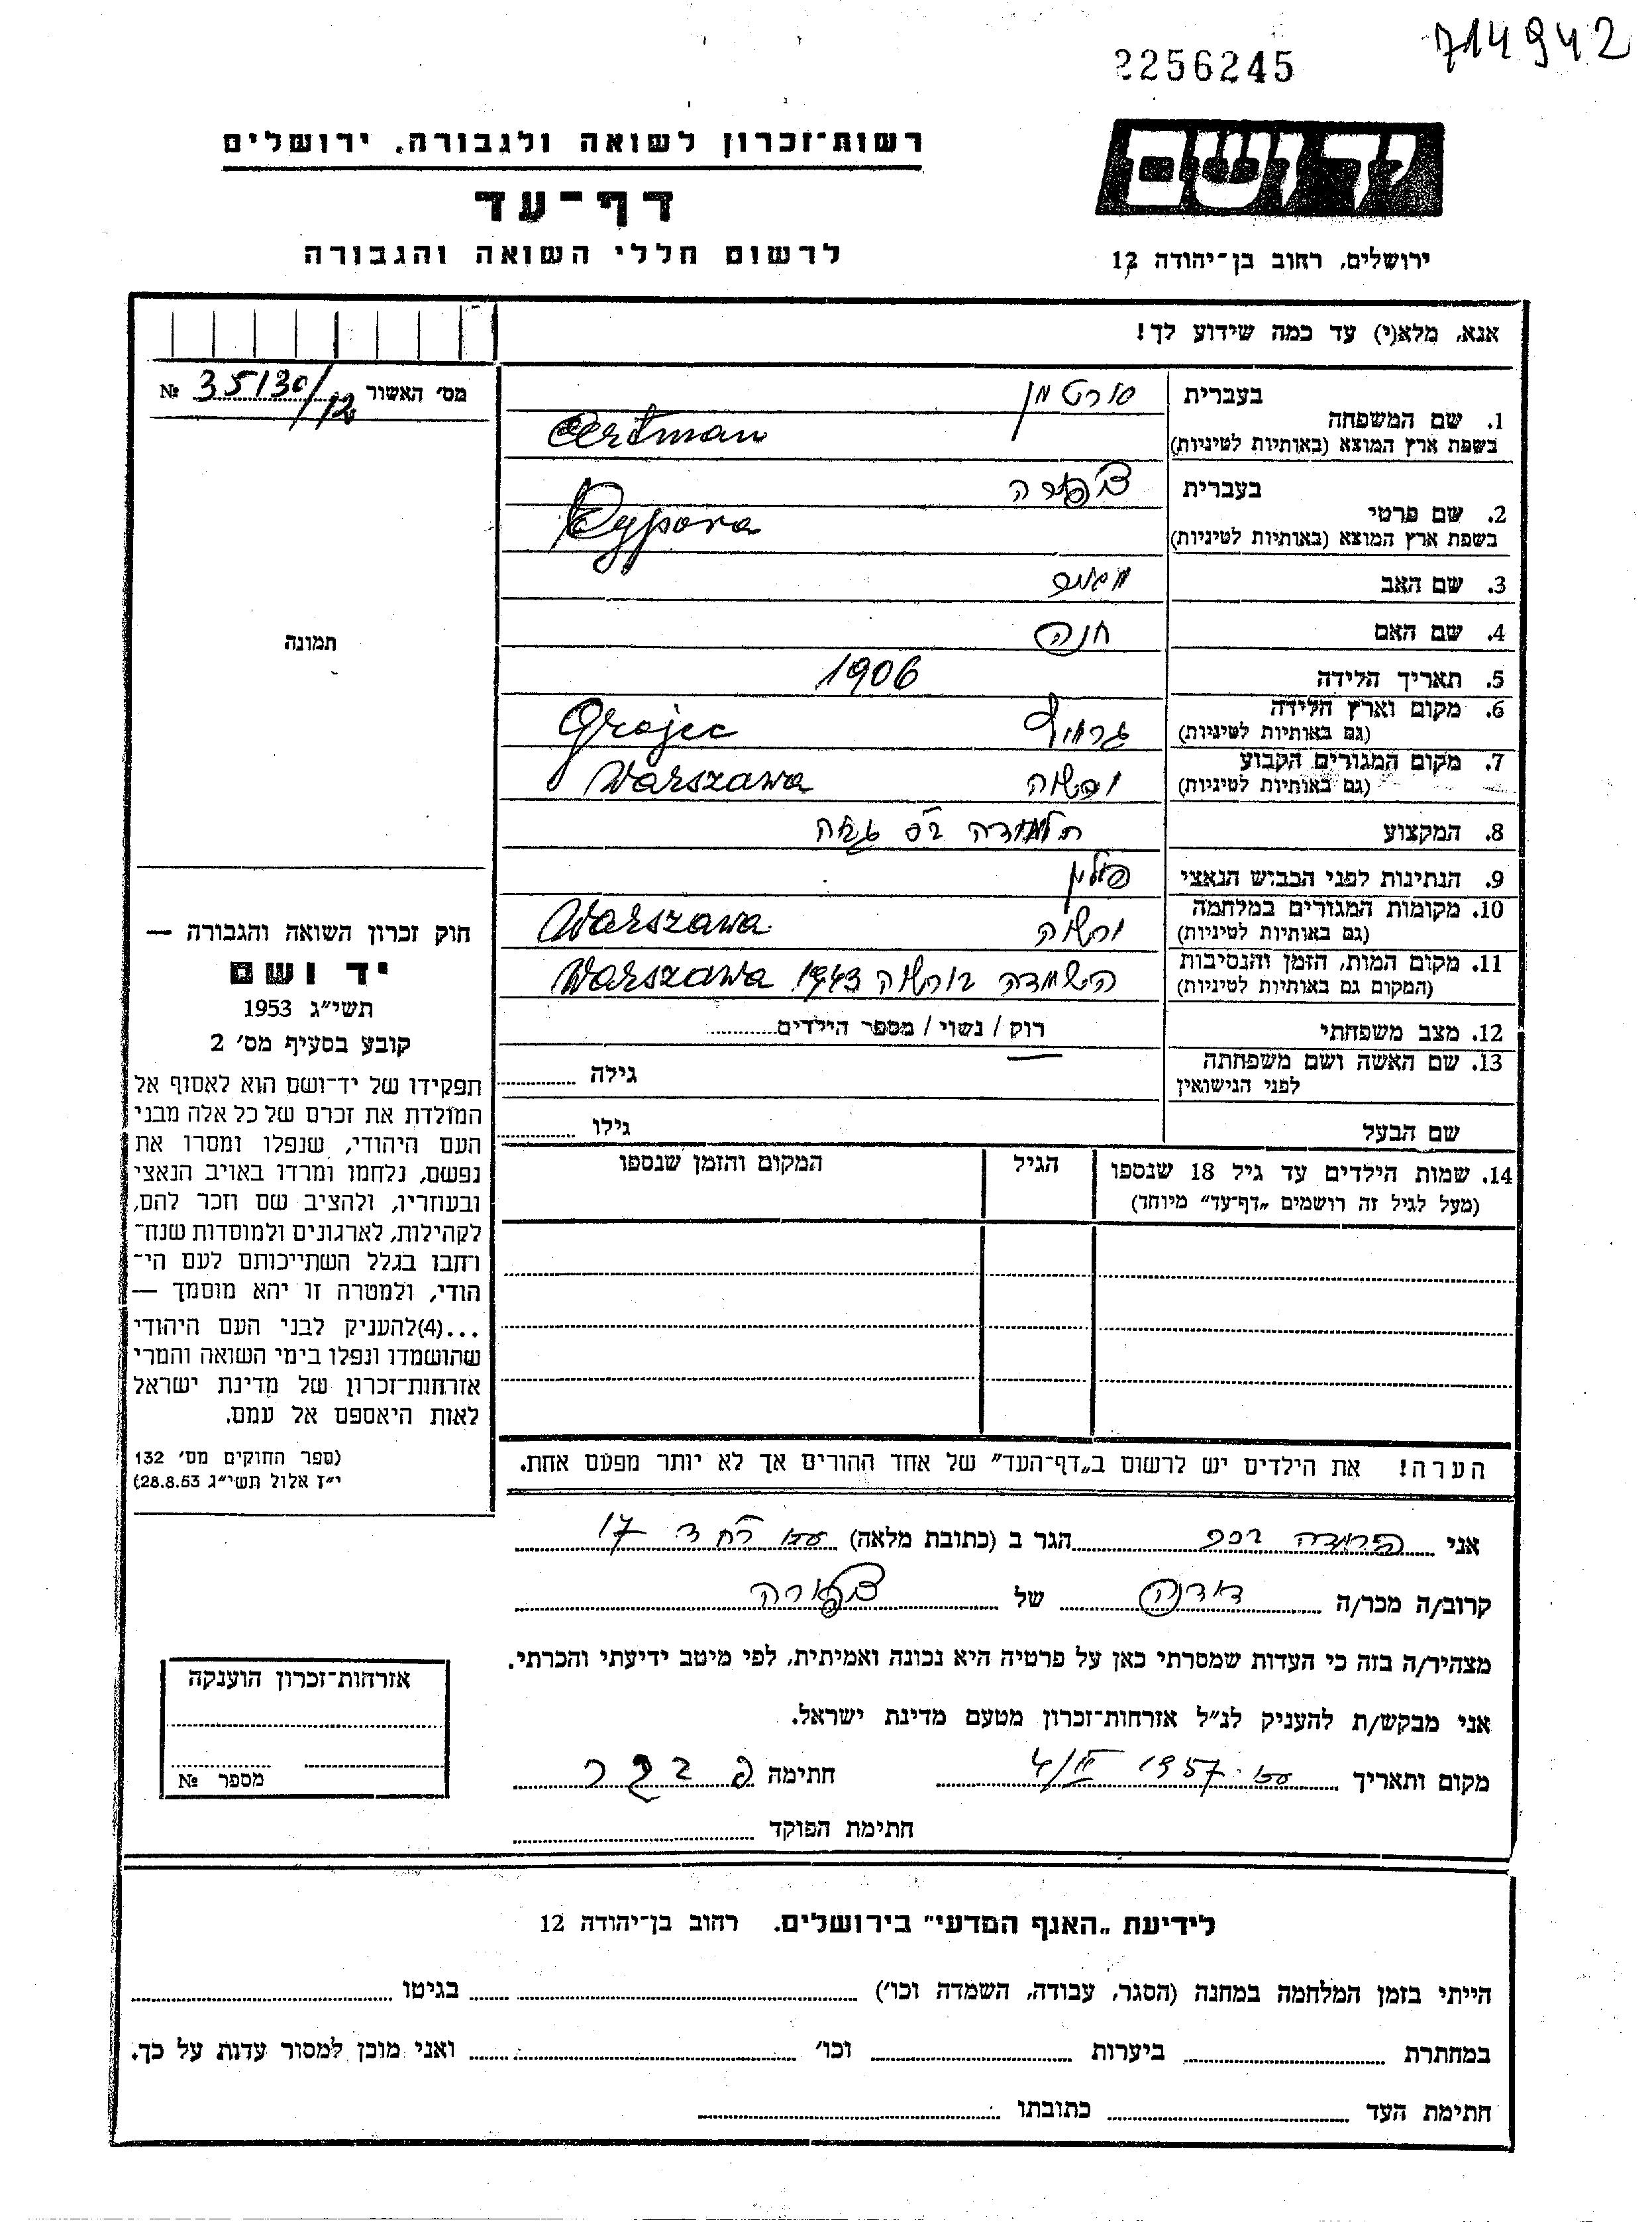 714942
2256245
יד ושם
ירושלים, רחוב בן־יהודה 12
רשות־זכרון לשואה ולגבורה, ירושלים
דף־עד
לרשום חללי השואה והגבורה
אנא, מלא(י) עד כמה שידוע לך!
מס׳ האשור 35130/12 №
בעברית
1. שם המשפחה
בשפת ארץ המוצא (באותיות לטיניות)
בעברית צפורה
2. שם פרטי Cypora
בשפת ארץ המוצא (באותיות לטיניות)
3. שם האב
4. שם האם חנה
5. תאריך הלידה 1906
6. מקום וארץ הלידה Grojec
(גם באותיות לטיניות)
7. מקום המגורים הקבוע ורשה Warszawa
(גם באותיות לטיניות)
8. המקצוע
9. הנתינות לפני הכבוש הנאצי פולין
10. מקומות המגורים במלחמה ורשה Warszawa
(גם באותיות לטיניות)
11. מקום המות, הזמן והנסיבות הושמדה בורשה 1943 Warszawa
(המקום גם באותיות לטיניות)
12. מצב משפחתי רוק / נשוי / מספר הילדים
13. שם האשה ושם משפחתה גילה
לפני הנישואין
שם הבעל גילו
14. שמות הילדים עד גיל 18 שנספו הגיל המקום והזמן שנספו
(מעל לגיל זה רושמים „דף־עד” מיוחד)
הערה! את הילדים יש לרשום ב„דף־העד” של אחד ההורים אך לא יותר מפעם אחת.
תמונה
חוק זכרון השואה והגבורה —
יד ושם
תשי״ג 1953
קובע בסעיף מס׳ 2
תפקידו של יד־ושם הוא לאסוף אל
המולדת את זכרם של כל אלה מבני
העם היהודי, שנפלו ומסרו את
נפשם, נלחמו ומרדו באויב הנאצי
ובעוזריו, ולהציב שם וזכר להם,
לקהילות, לארגונים ולמוסדות שנח־
רבו בגלל השתייכותם לעם הי־
הודי, ולמטרה זו יהא מוסמך —
...(4)להעניק לבני העם היהודי
שהושמדו ונפלו בימי השואה והמרי
אזרחות־זכרון של מדינת ישראל
לאות היאספם אל עמם.
(ספר החוקים מס׳ 132
י״ז אלול תשי״ג 28.8.53)
אני הגר ב (כתובת מלאה) 17
קרוב/ה מכר/ה דודנה של צפורה
מצהיר/ה בזה כי העדות שמסרתי כאן על פרטיה היא נכונה ואמיתית, לפי מיטב ידיעתי והכרתי.
אני מבקש/ת להעניק לנ״ל אזרחות־זכרון מטעם מדינת ישראל.
מקום ותאריך 1957 חתימה
חתימת הפוקד
אזרחות־זכרון הוענקה
מספר №
לידיעת „האגף המדעי” בירושלים. רחוב בן־יהודה 12
הייתי בזמן המלחמה במחנה (הסגר, עבודה, השמדה וכו׳) בגיטו
במחתרת ביערות וכו׳ ואני מוכן למסור עדות על כך.
חתימת העד כתובתו